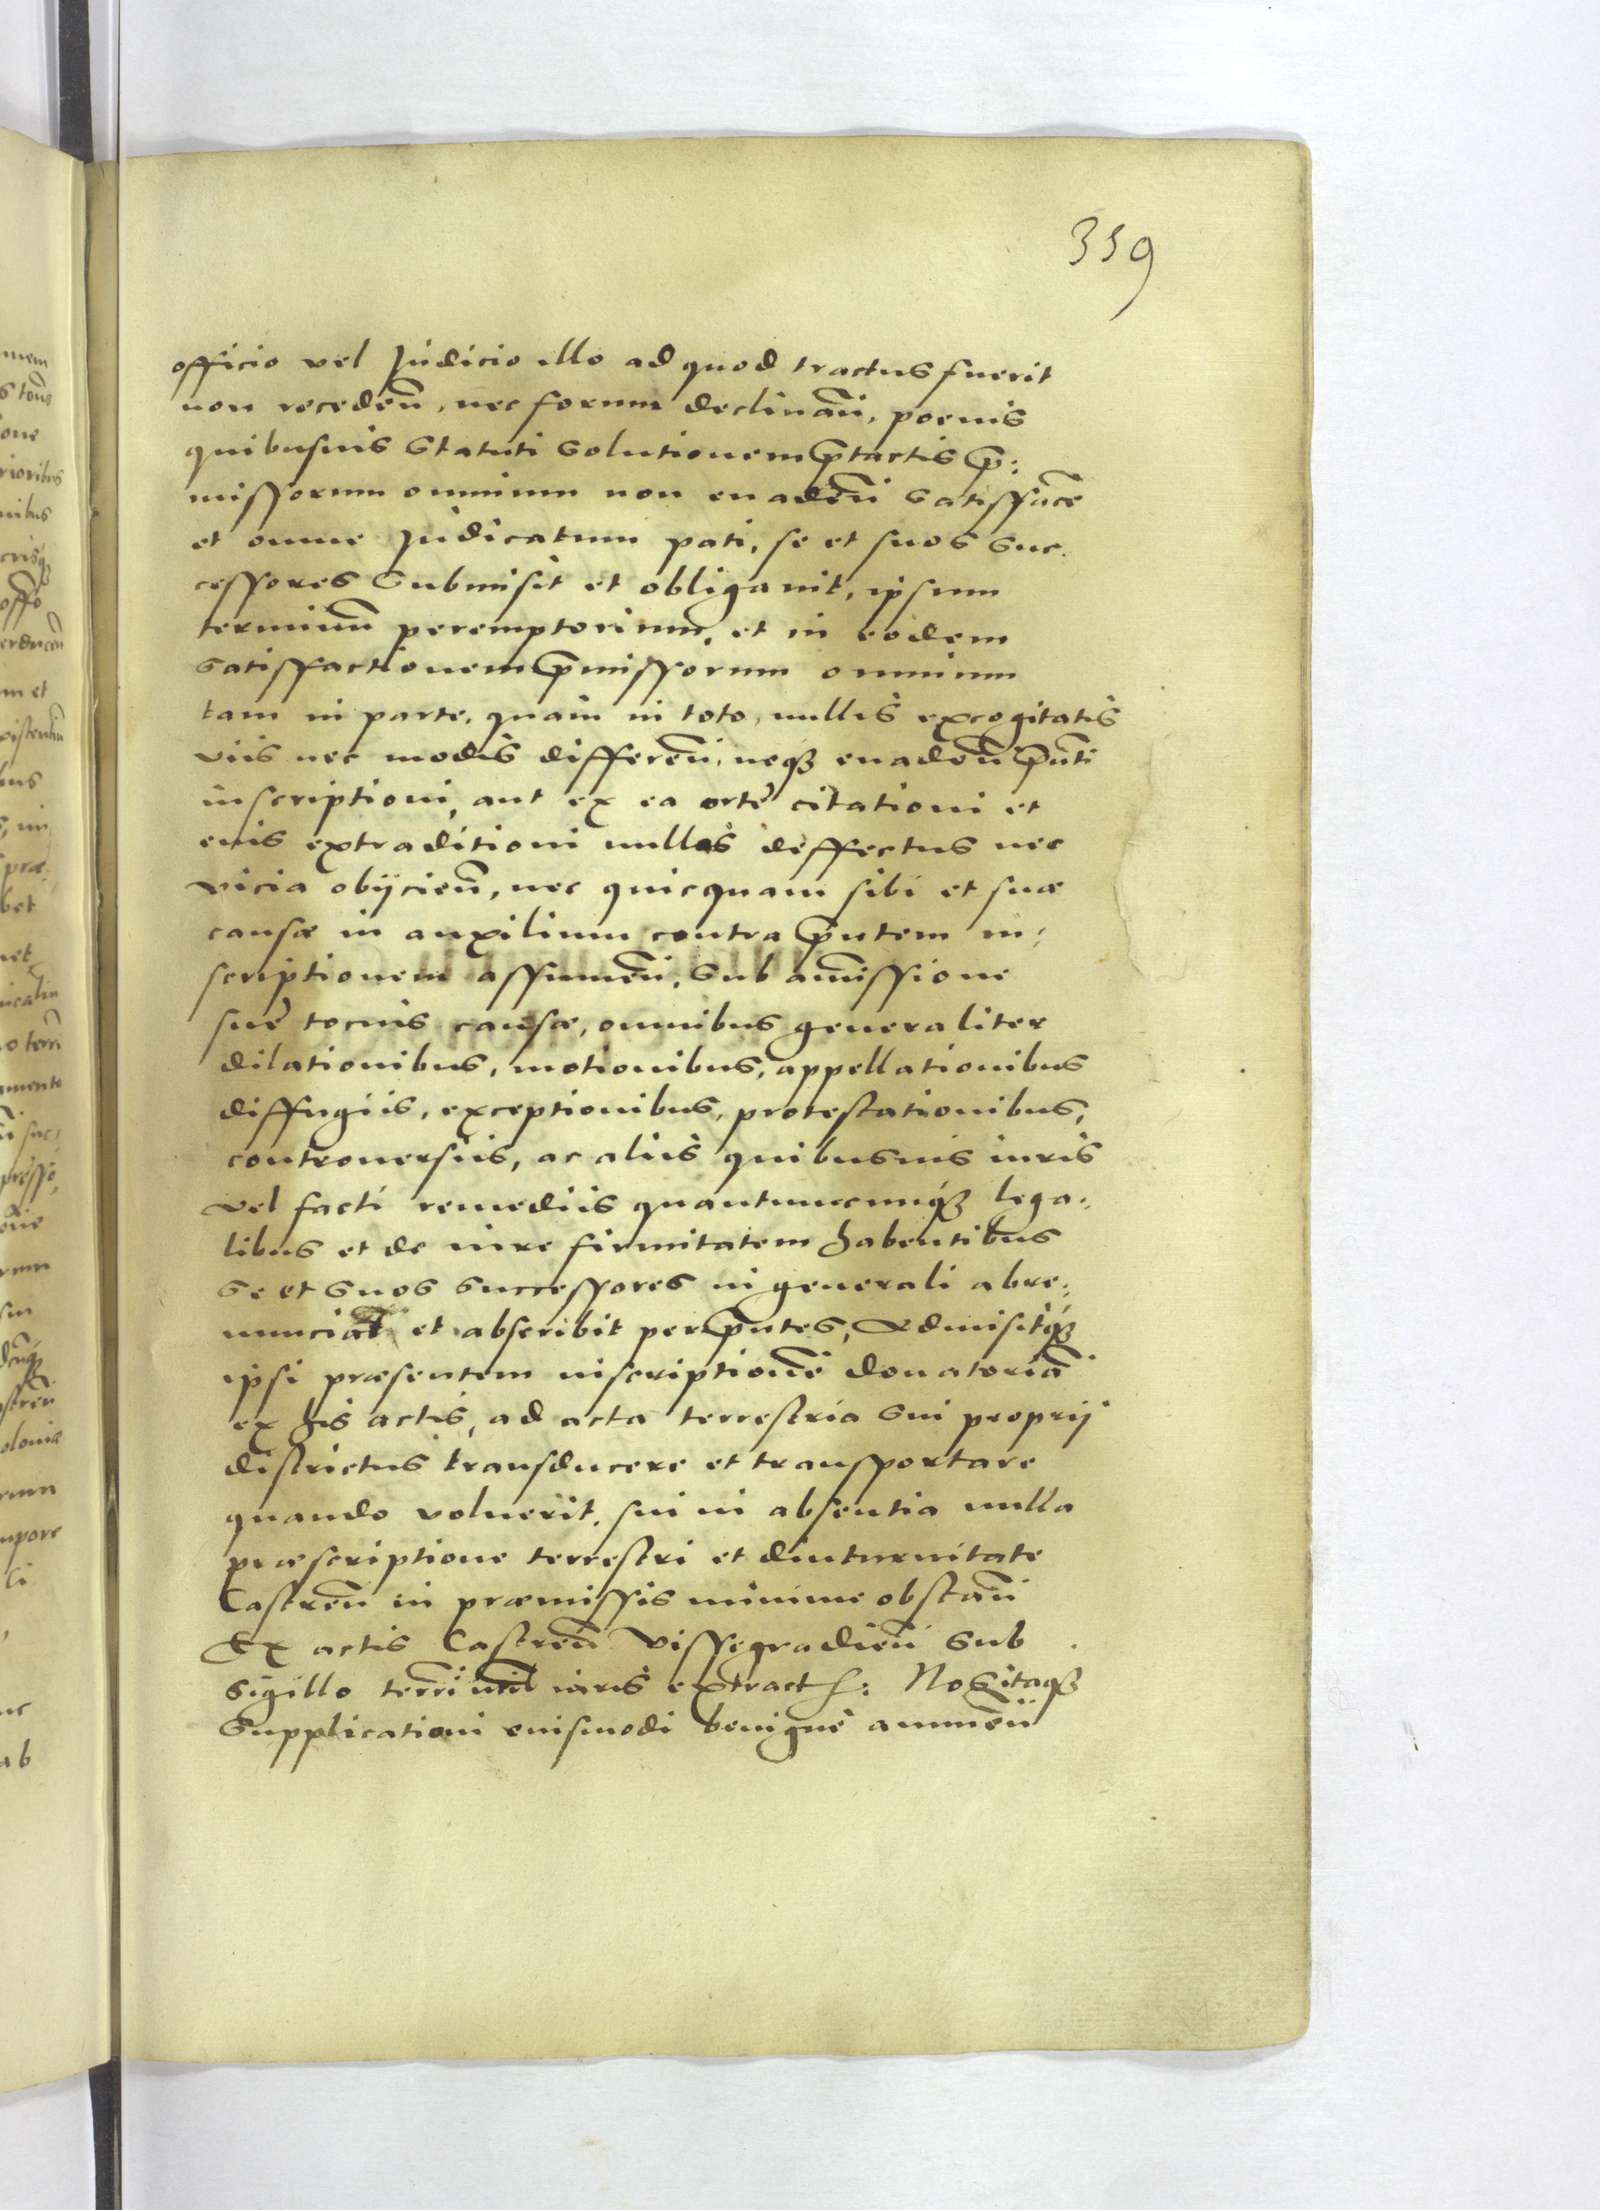 359
officio vel Judicio illo ad quod tractus fuerit
non recedeñ, nec forum declinañ, poenis
quibusuis Statuti Solutionem p̃tactis p̃:
missorum omnium non euadeñ Satisfac̃e
et omne Judicatum pati, se et suos Suc.
cessores Submisit et obligauit, ipsum
terminũ peremptorium, et in eodem
Satisfactionem p̃missorum omnium
tam in parte, quam in toto, nullis excogitatis
viis nec modis differeñ, neq3 euadeñ p̃nti
inscriptioni, aut ex ea ortè citationi et
eius extraditioni nullos deffectus nec
vicia obijcieñ, nec quicquam sibi et suæ
causæ in auxilium contra p̃ntem in:
scriptionem assumeñ, Sub amissione
suè tocius causæ, omnibus generaliter
dilationibus, motionibus, appellationibus
diffugiis, exceptionibus, protestationibus,
controuersiis, ac aliis quibusuis iuris
vel facti remediis quantumcunq3 lega:
libus et de iure firmitatem habentibus
Se et Suos Successores in generali abre:
nunciat et abscribit per p̃ntes, Admisitq3
ipsi præsentem inscriptionẽ donatoriã
ex his actis, ad acta terrestria Sui proprij
districtus transducere et transportare
quando voluerit, sui in absentia nulla
præscriptione terrestri et diuturnitate
Castreñ in præmissis minime obstañ
Ex actis Castreñ Vissegradieñ Sub
Sigillo terrĩ iuris extract S: Nos itaq3
Supplicationi euismodi benignè annueñ